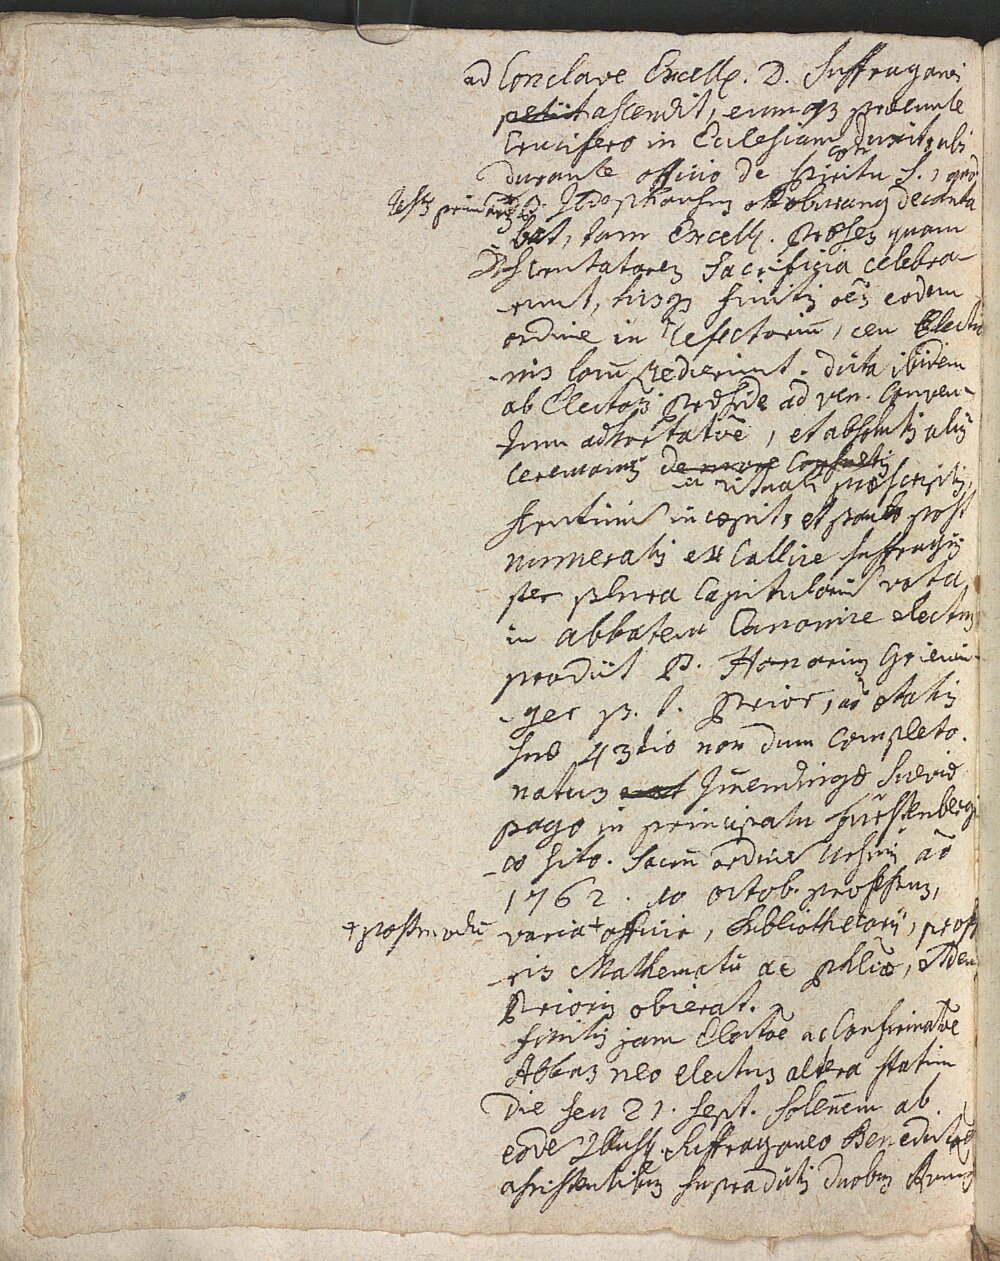 ad Conclave Excell. D. Suffraganei
petiit ascendit, eumq3 praeeunte
Crucifero in Ecclesiam duxit, ubi
durante officio de Spiritu S., quod
D. Ildephonsus decanta
bat, tam Excell. Praeses quam
Scrutatores Sacrificia celebra-
runt, hisq3 finitis oes eodem
ordine in Refectorium, ceu Electio
-nis locum redierunt. dicta ibidem
ab Electois Praeside ad ven. Conven-
tum adhortatione, et absolutis aliis
ceremoniis de more consuetis
in rituali praescriptis,
scrutinium incepit, et paulo post
numeratis ex Calice suffragiis
per plura Capitularium vota,
in abbatem Canonice electus
prodiit P. Honorius Grienin-
-ger p. t. Prior, ao aetatis
suae 43tio non dum completo.
natus erat Immendingae Sueviae
pago in principatu Fürstenberg
-co sito. Sacrum ordinem Urspini ao
1762. 10 octob. professus,
varia + officia, Bibliothecarii, profes
-ris Mathematum ac phliae, tandem
Prioris obierat.
+ postmodum
finitis jam Electoe ac Confirmatoe
Abbas neo electus altera statim
die seu 21. sept. solenem ab
eode Illust. Suffraganeo Benedictoe
assistentibus supradictis duobus